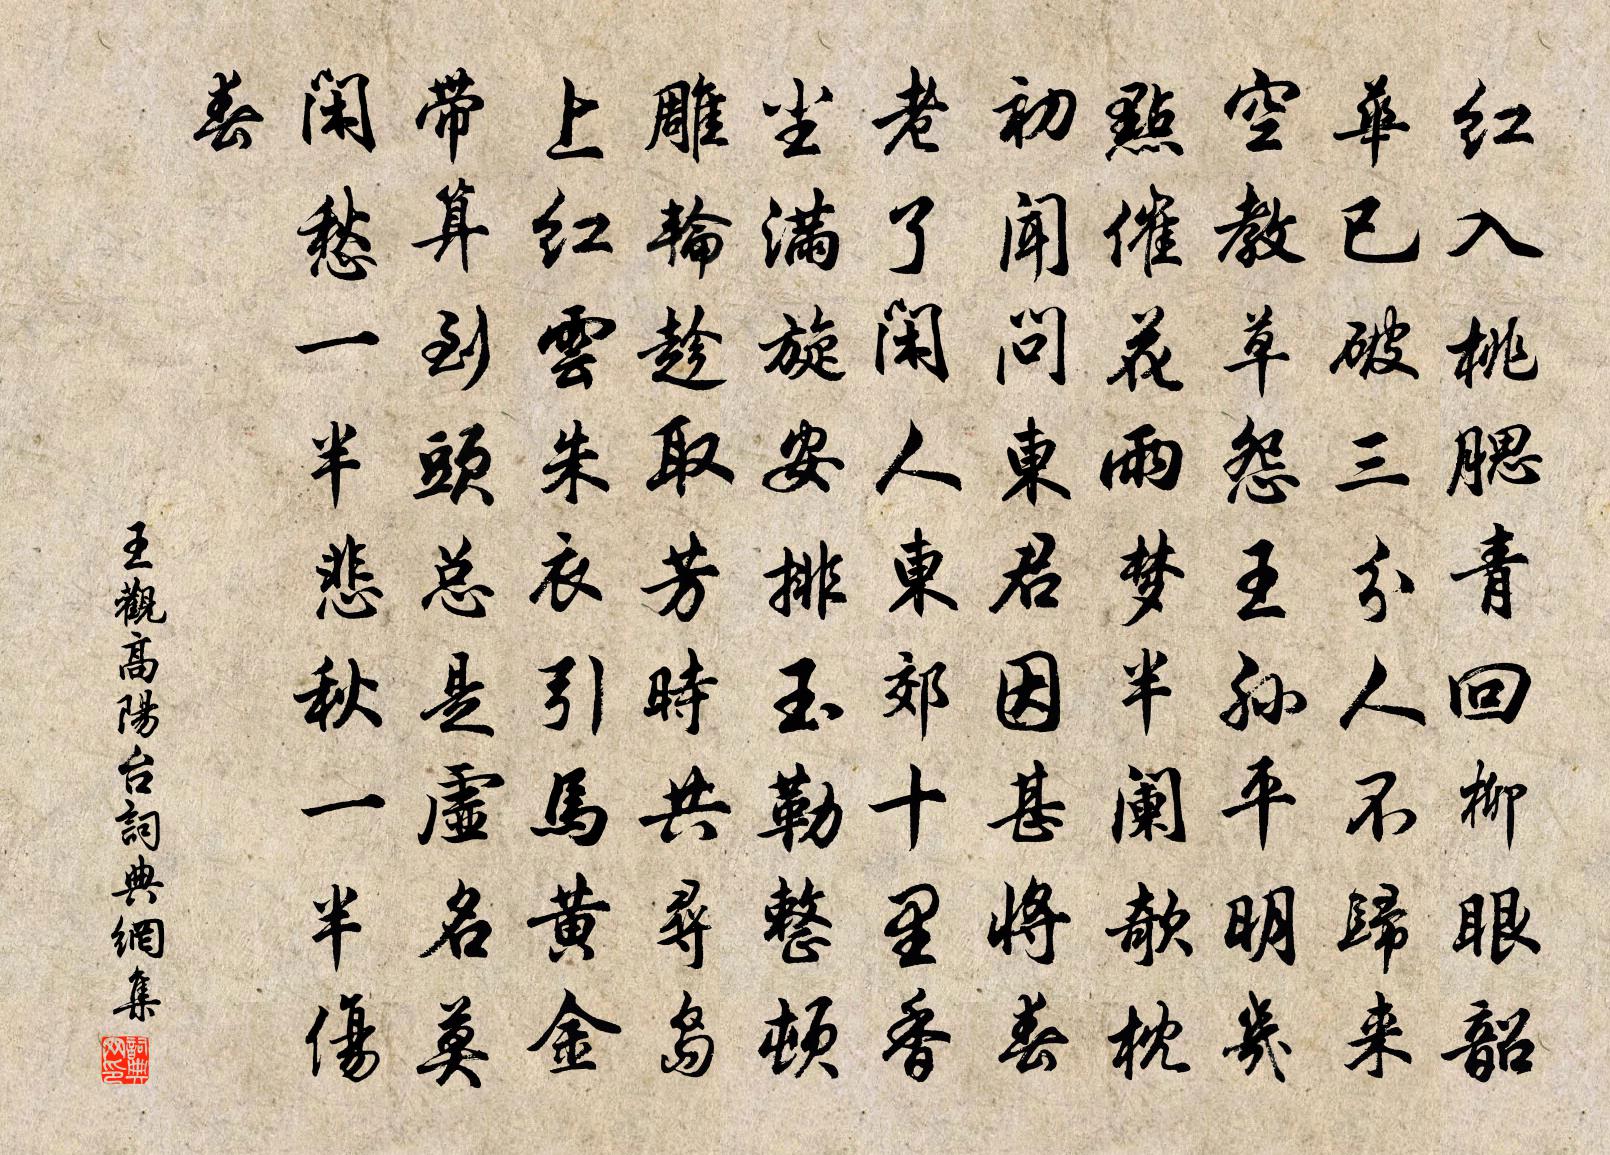 红入桃腮青回柳眼韶
華已破三分人不歸来
空教草怨王孙平明幾
點催花雨梦半阑欹枕
初闻问東君因甚將春
老了闲人東郊十里香
尘满旋安排玉勒整頓
雕輪趁取芳時共尋岛
上红雲朱衣引馬黄金
带算到頭总是虚名莫
闲愁一半悲秋一半傷
春
王觀高陽台詞典網集
詞典网印